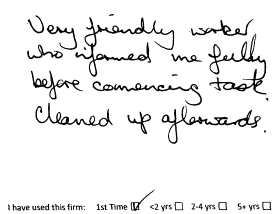 Very friendly worker
who informed me fully
before comencing task.
Cleaned up afterwards.
I have used this firm: 1st Time ☑ <2 yrs ☐ 2-4 yrs ☐ 5+ yrs ☐